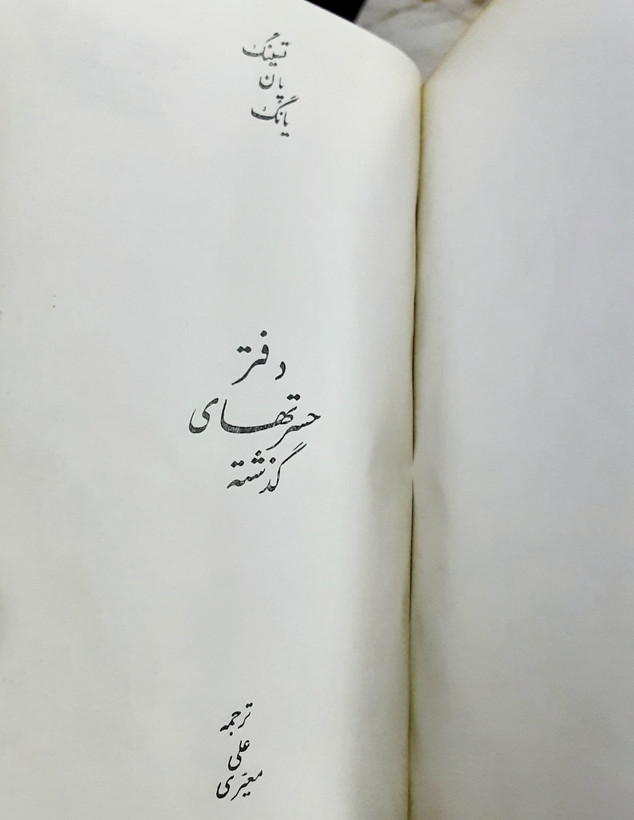 تینگ
پان
یانگ
دفتر
حسرتهای
گذشته
ترجمه
علی
معیّری